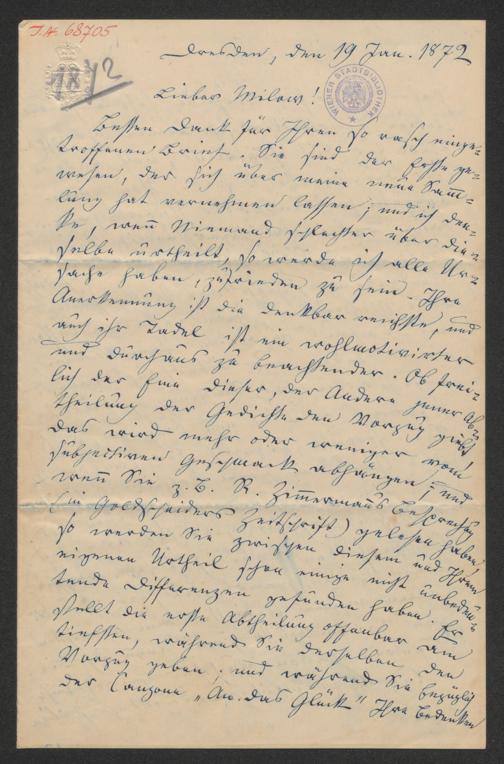 I.N. 68705
1872
WIENER STADTBIBLIOTHEK
Dresden, den 19 Jan. 1872
Lieber Milow!
Besten Dank für Ihren so rasch einge-
troffenen Brief. Sie sind der Erste ge-
wesen, der sich über meine neue Samm-
lung hat vernehmen lassen; und ich den-
ke, wenn Niemand schlechter über die-
selbe urtheilt, so werde ich alle Ur-
sache haben, zufrieden zu sein. Ihre
Anerkennung ist die denkbar reichste, und
auch ihr Tadel ist ein wohlmotivirter
und durchaus zu beachtender. Ob frei-
lich der Eine dieser, der Andere jener Ab-
theilung der Gedichte den Vorzug giebt,
das wird mehr oder weniger vom
subjectiven Geschmack abhängen; und
wenn Sie z.B. R. Zimmermanns Besprechung
(in Goldscheiders Zeitschrift) gelesen haben,
so werden Sie zwischen diesem und Ihrem
eigenen Urtheil schon einige nicht unbedeu-
tende Differenzen gefunden haben. Er
stellt die erste Abtheilung offenbar am
tiefsten, während Sie derselben den
Vorzug geben; und während Sie bezüglich
der Canzone „An das Glück" Ihre Bedenken